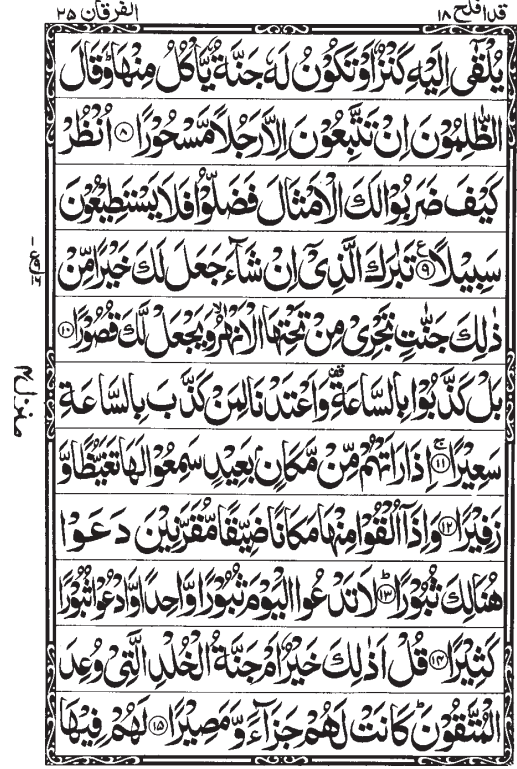 قد افلح ١٨
الفرقان ٢٥
يُلْقٰۤى اِلَيْهِ كَنْزٌ اَوْ تَكُوْنُ لَهٗ جَنَّةٌ يَّاْكُلُ مِنْهَا ؕ وَقَالَ
الظّٰلِمُوْنَ اِنْ تَتَّبِعُوْنَ اِلَّا رَجُلًا مَّسْحُوْرًا ﴿۸﴾ اُنْظُرْ
كَيْفَ ضَرَبُوْا لَكَ الْاَمْثَالَ فَضَلُّوْا فَلَا يَسْتَطِيْعُوْنَ
سَبِيْلًا ﴿۹﴾ ع تَبٰرَكَ الَّذِىْۤ اِنْ شَآءَ جَعَلَ لَكَ خَيْرًا مِّنْ
ذٰلِكَ جَنّٰتٍ تَجْرِىْ مِنْ تَحْتِهَا الْاَنْهٰرُ ۙ وَيَجْعَلْ لَّكَ قُصُوْرًا ﴿۱۰﴾
بَلْ كَذَّبُوْا بِالسَّاعَةِ وَاَعْتَدْنَا لِمَنْ كَذَّبَ بِالسَّاعَةِ
سَعِيْرًا ﴿۱۱﴾ ۚ اِذَا رَاَتْهُمْ مِّنْ مَّكَانٍۭ بَعِيْدٍ سَمِعُوْا لَهَا تَغَيُّظًا وَّ
زَفِيْرًا ﴿۱۲﴾ وَاِذَاۤ اُلْقُوْا مِنْهَا مَكَانًا ضَيِّقًا مُّقَرَّنِيْنَ دَعَوْا
هُنَالِكَ ثُبُوْرًا ﴿۱۳﴾ ؕ لَا تَدْعُوا الْيَوْمَ ثُبُوْرًا وَّاحِدًا وَّادْعُوْا ثُبُوْرًا
كَثِيْرًا ﴿۱۴﴾ قُلْ اَذٰلِكَ خَيْرٌ اَمْ جَنَّةُ الْخُلْدِ الَّتِىْ وُعِدَ
الْمُتَّقُوْنَ ؕ كَانَتْ لَهُمْ جَزَآءً وَّ مَصِيْرًا ﴿۱۵﴾ لَهُمْ فِيْهَا
منزل ۴